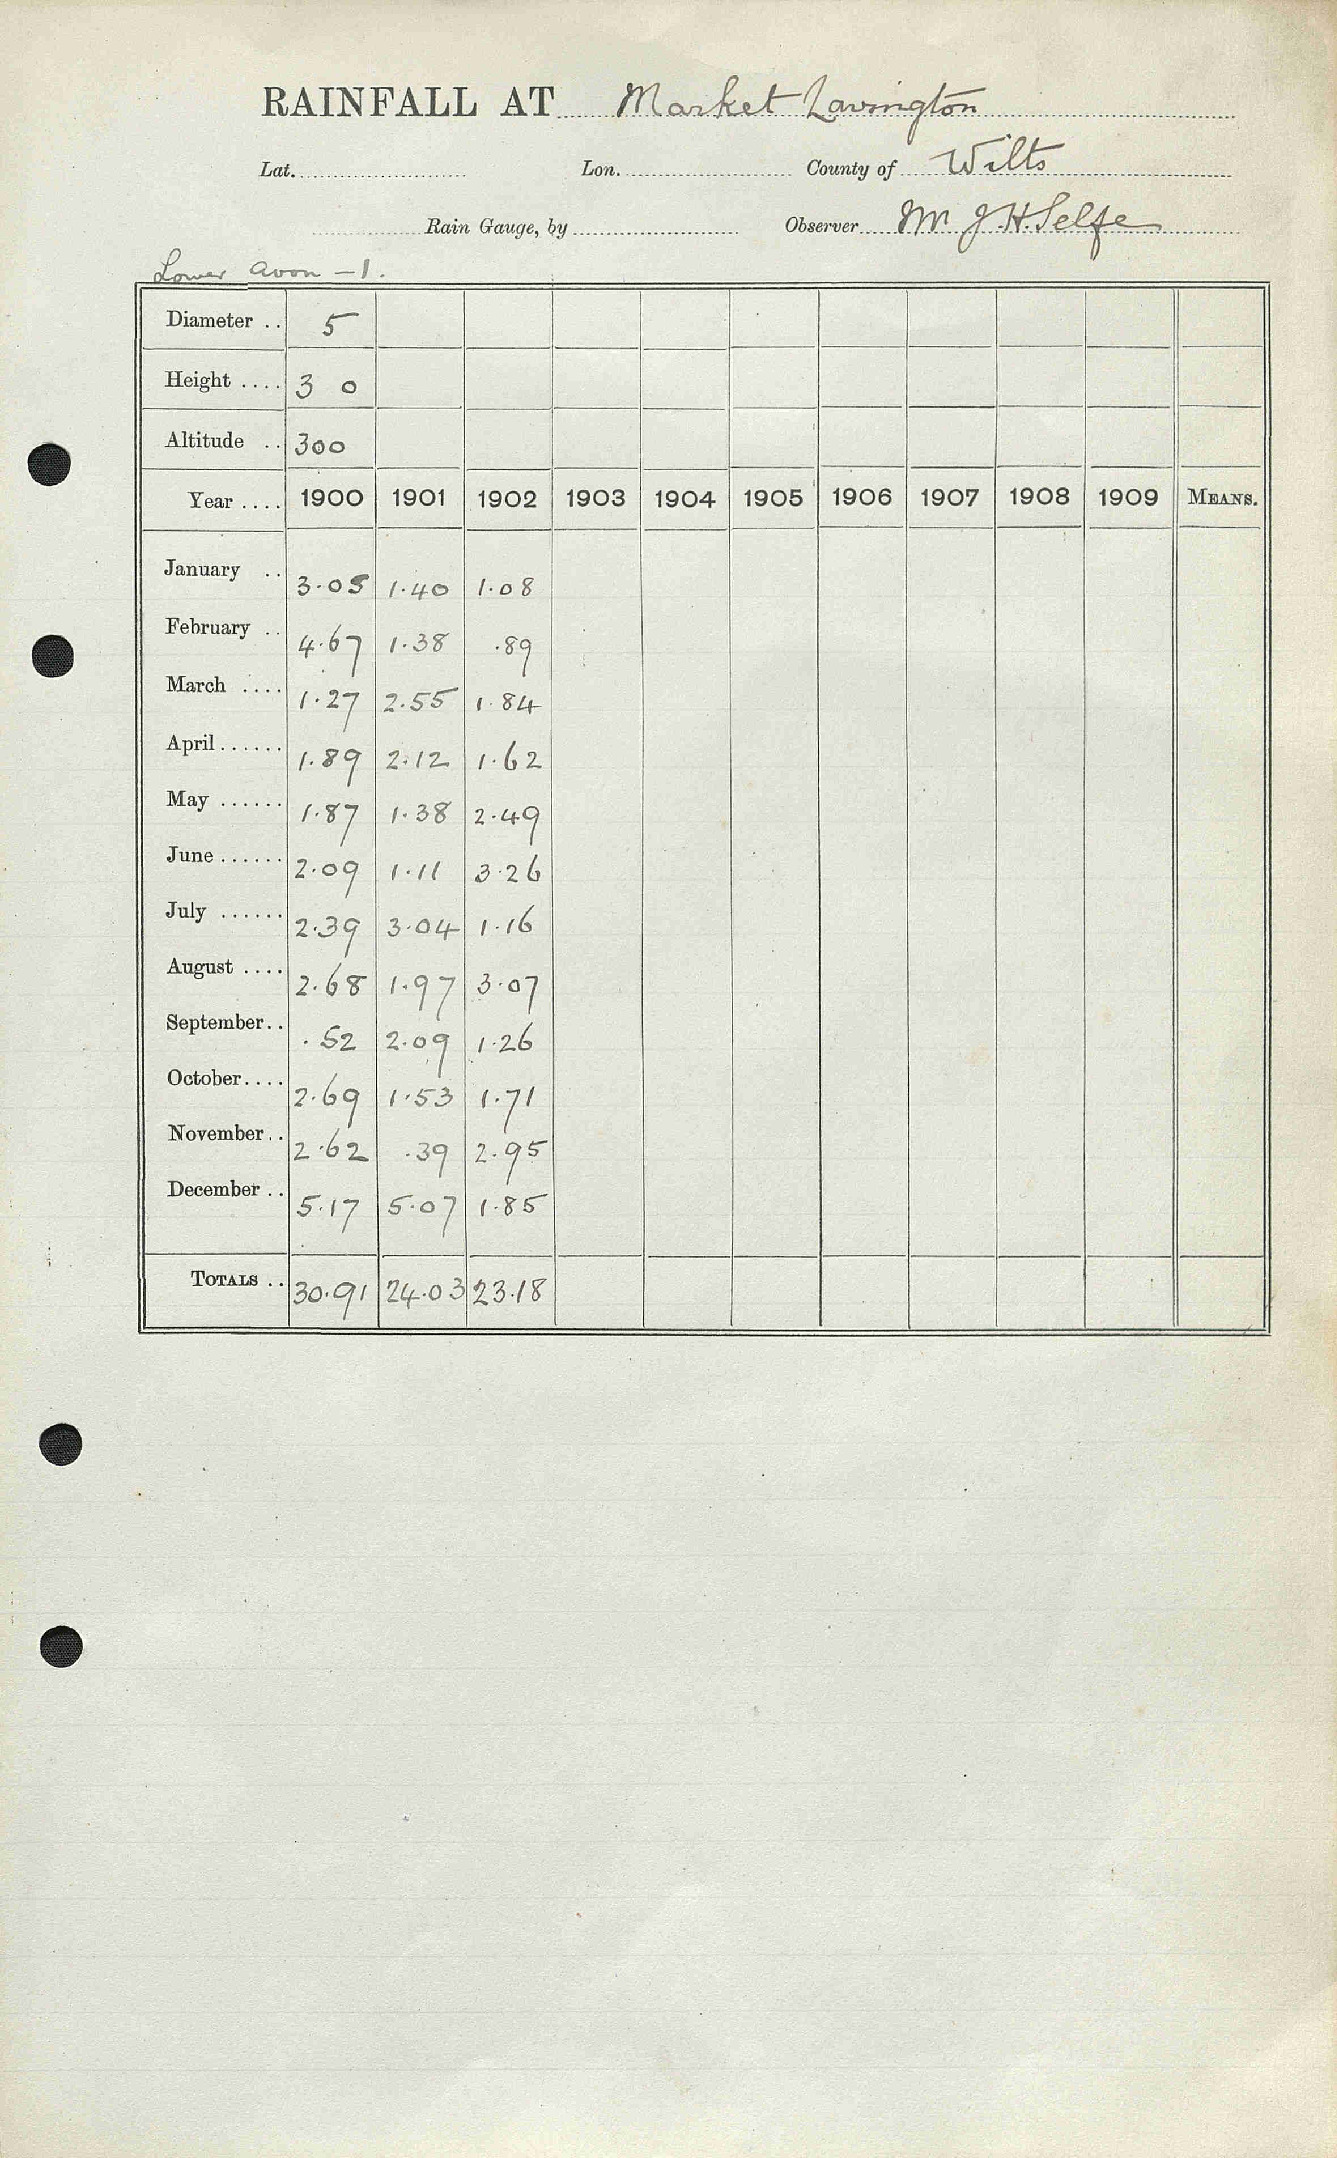 RAINFALL AT Market Lavington
Lat. Lon. County of Wilts
Rain Gauge, by Observer Mr J.H. Selfe
Lower Avon - 1.
Diameter .. 5
Height .... 3 0
Altitude .. 300
Year .... 1900 1901 1902 1903 1904 1905 1906 1907 1908 1909 MEANS.
January .. 3.05 1.40 1.08
February .. 4.67 1.38 .89
March .... 1.27 2.55 1.84
April...... 1.89 2.12 1.62
May ...... 1.87 1.38 2.49
June...... 2.09 1.11 3.26
July ...... 2.39 3.04 1.16
August .... 2.68 1.97 3.07
September.. .52 2.09 1.26
October.... 2.69 1.53 1.71
November.. 2.62 .39 2.95
December .. 5.17 5.07 1.85
TOTALS .. 30.91 24.03 23.18